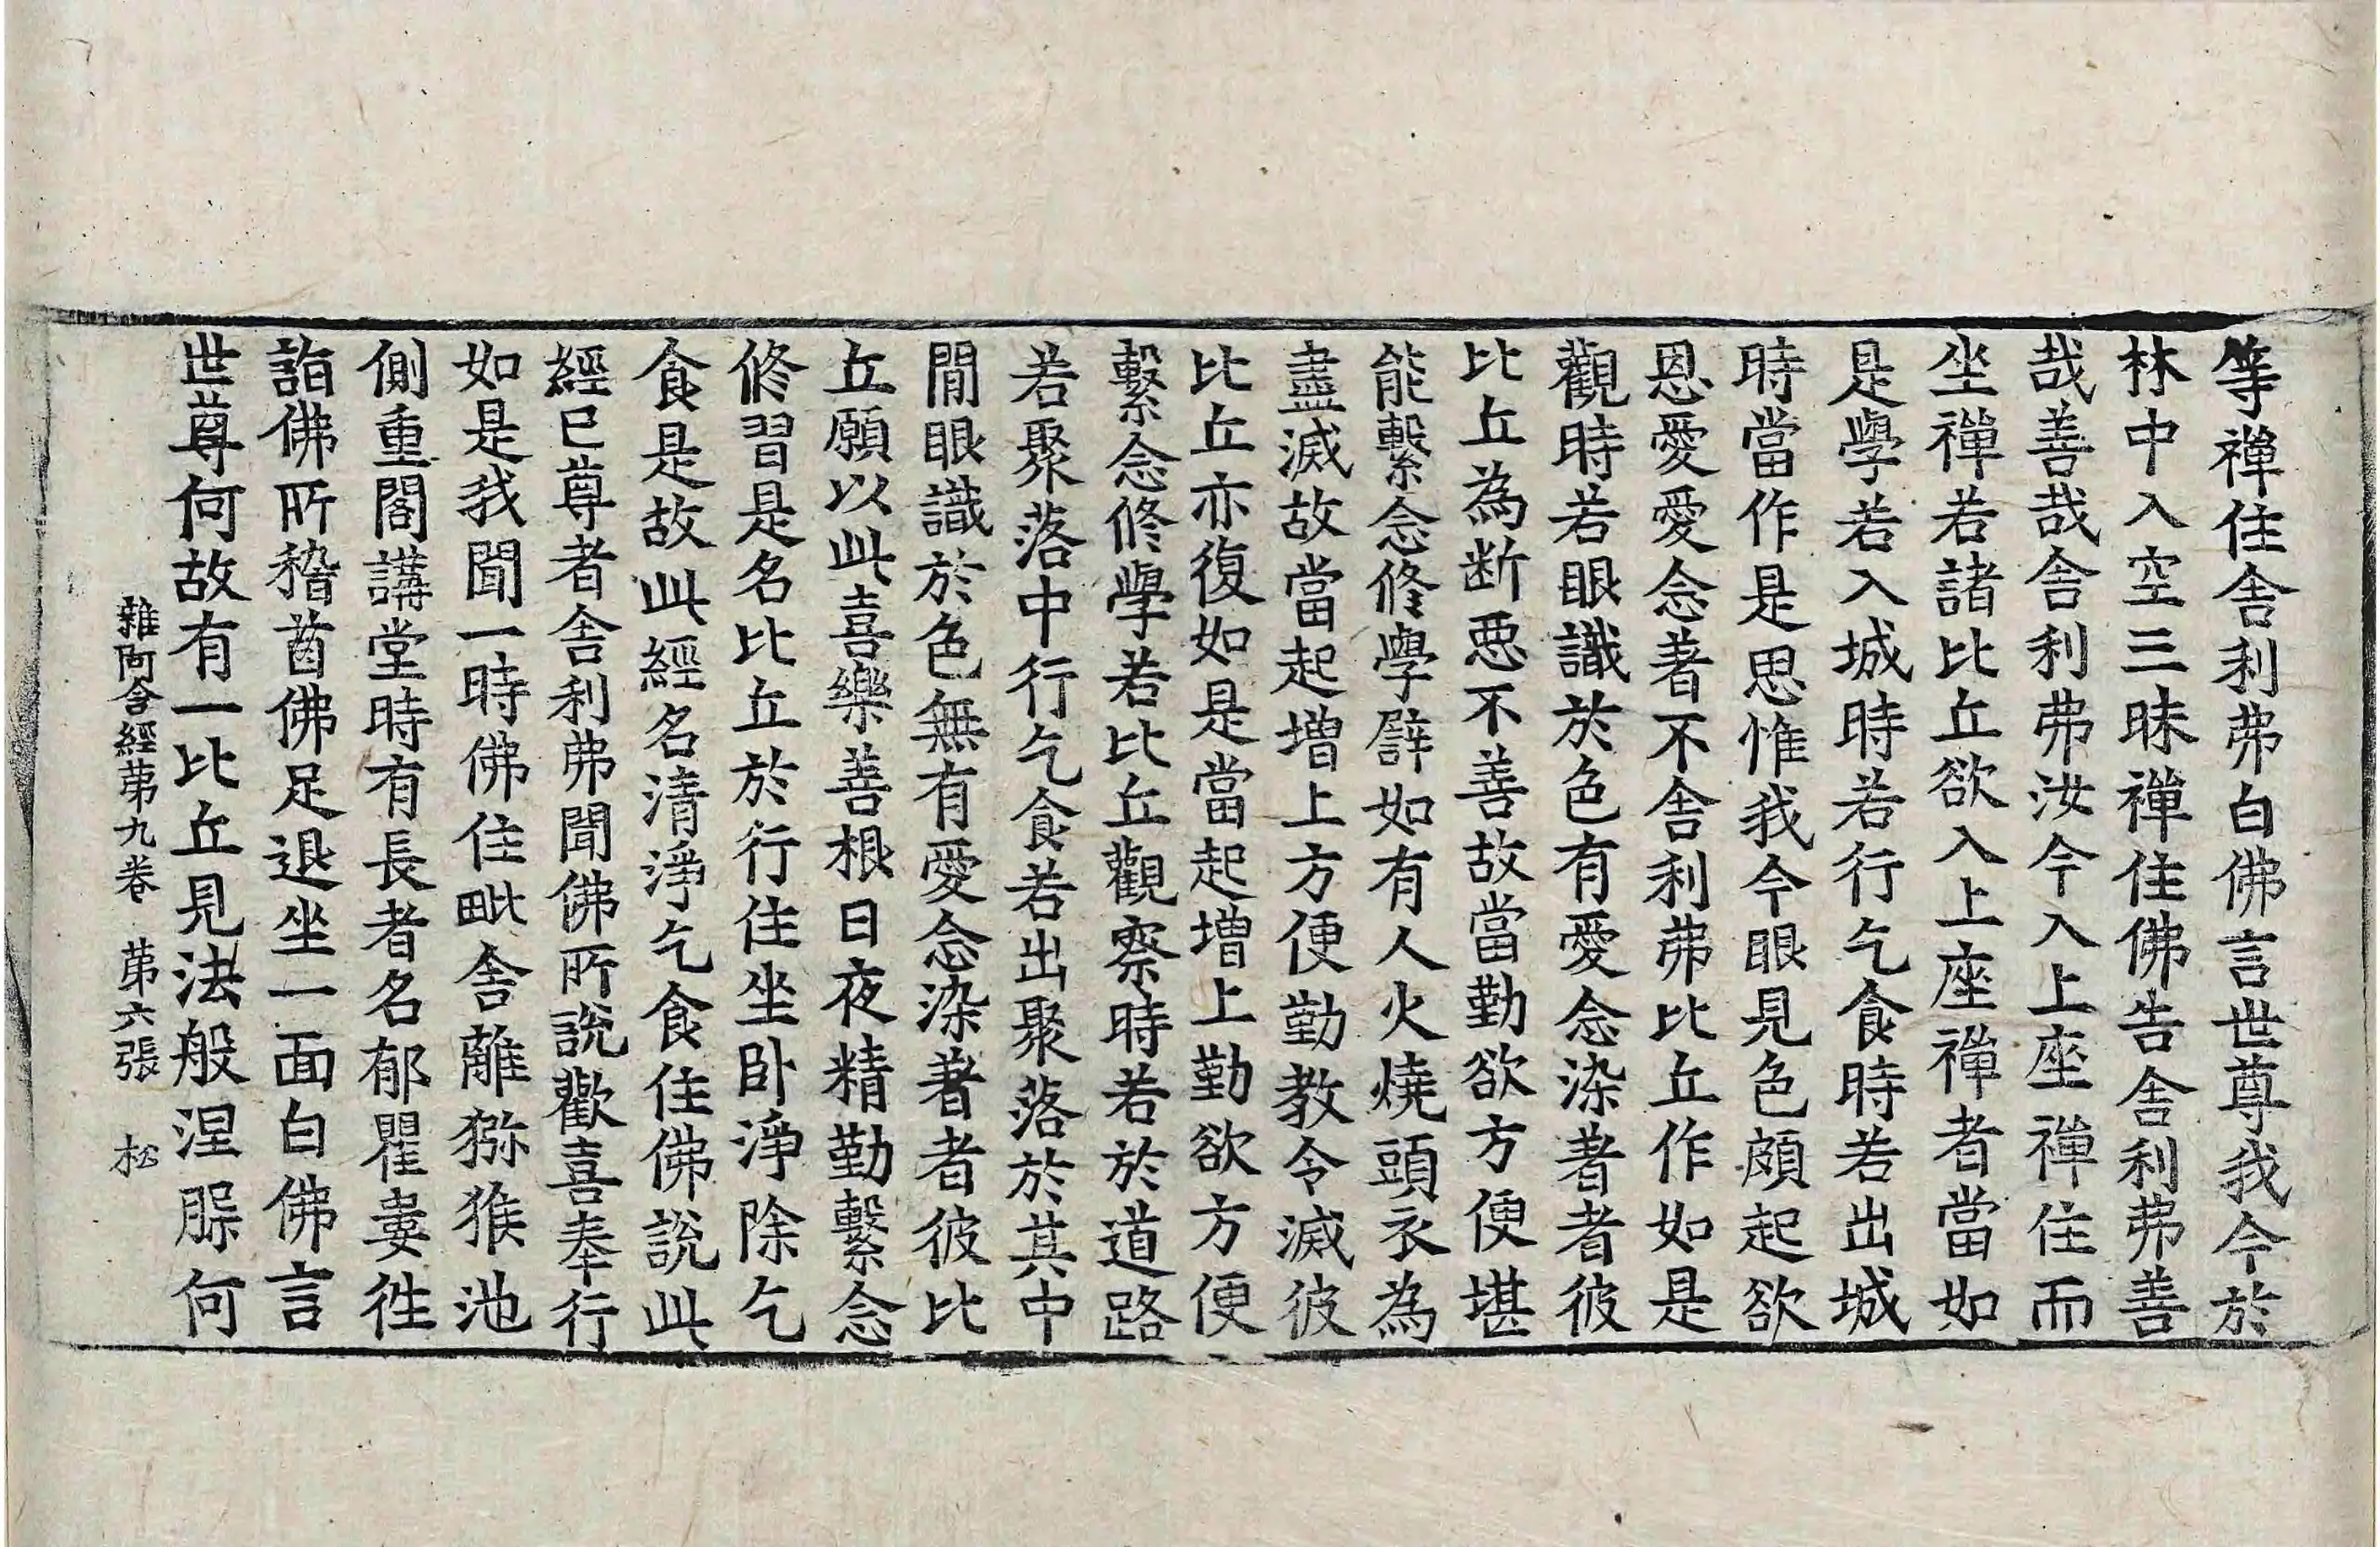 等禪住舍利弗白佛言世尊我今於
林中入空三昧禪住佛告舍利弗善
哉善哉舍利弗汝今入上座禪住而
坐禪若諸比丘欲入上座禪者當如
是學若入城時若行乞食時若出城
時當作是思惟我今眼見色頗起欲
恩愛愛念著不舍利弗比丘作如是
觀時若眼識於色有愛念染著者彼
比丘為断惡不善故當勤欲方便堪
能繫念修學譬如有人火燒頭衣為
盡滅故當起增上方便勤教令滅彼
比丘亦復如是當起增上勤欲方便
繫念修學若比丘觀察時若於道路
若聚落中行乞食若出聚落於其中
閒眼識於色無有愛念染著者彼比
丘願以此喜樂善根日夜精勤繫念
修習是名比丘於行住坐卧淨除乞
食是故此經名清淨乞食住佛說此
經已尊者舍利弗聞佛所說歡喜奉行
如是我聞一時佛住毗舍離獼猴池
側重閣講堂時有長者名郁瞿婁往
詣佛所稽首佛足退坐一面白佛言
世尊何故有一比丘見法般涅槃何
雜阿含經第九卷 第六張 松